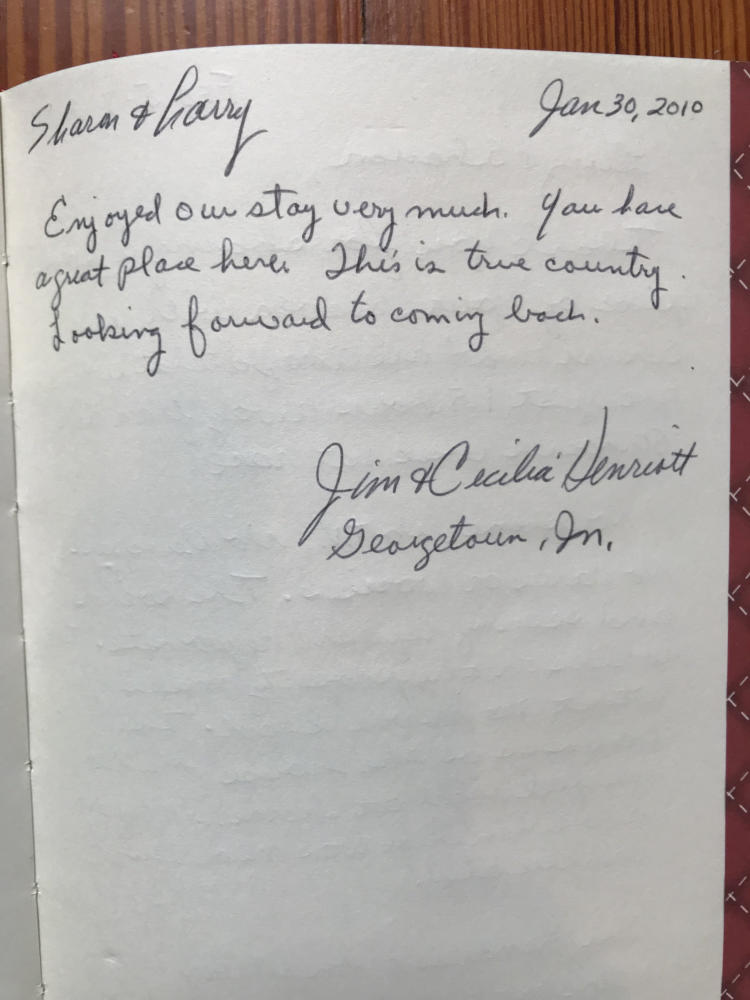 Sharon & Larry
Jan 30, 2010
Enjoyed our stay very much. You have
a great place here. This is true country.
Looking forward to coming back.
Jim & Cecilia Henriott
Georgetown, In.